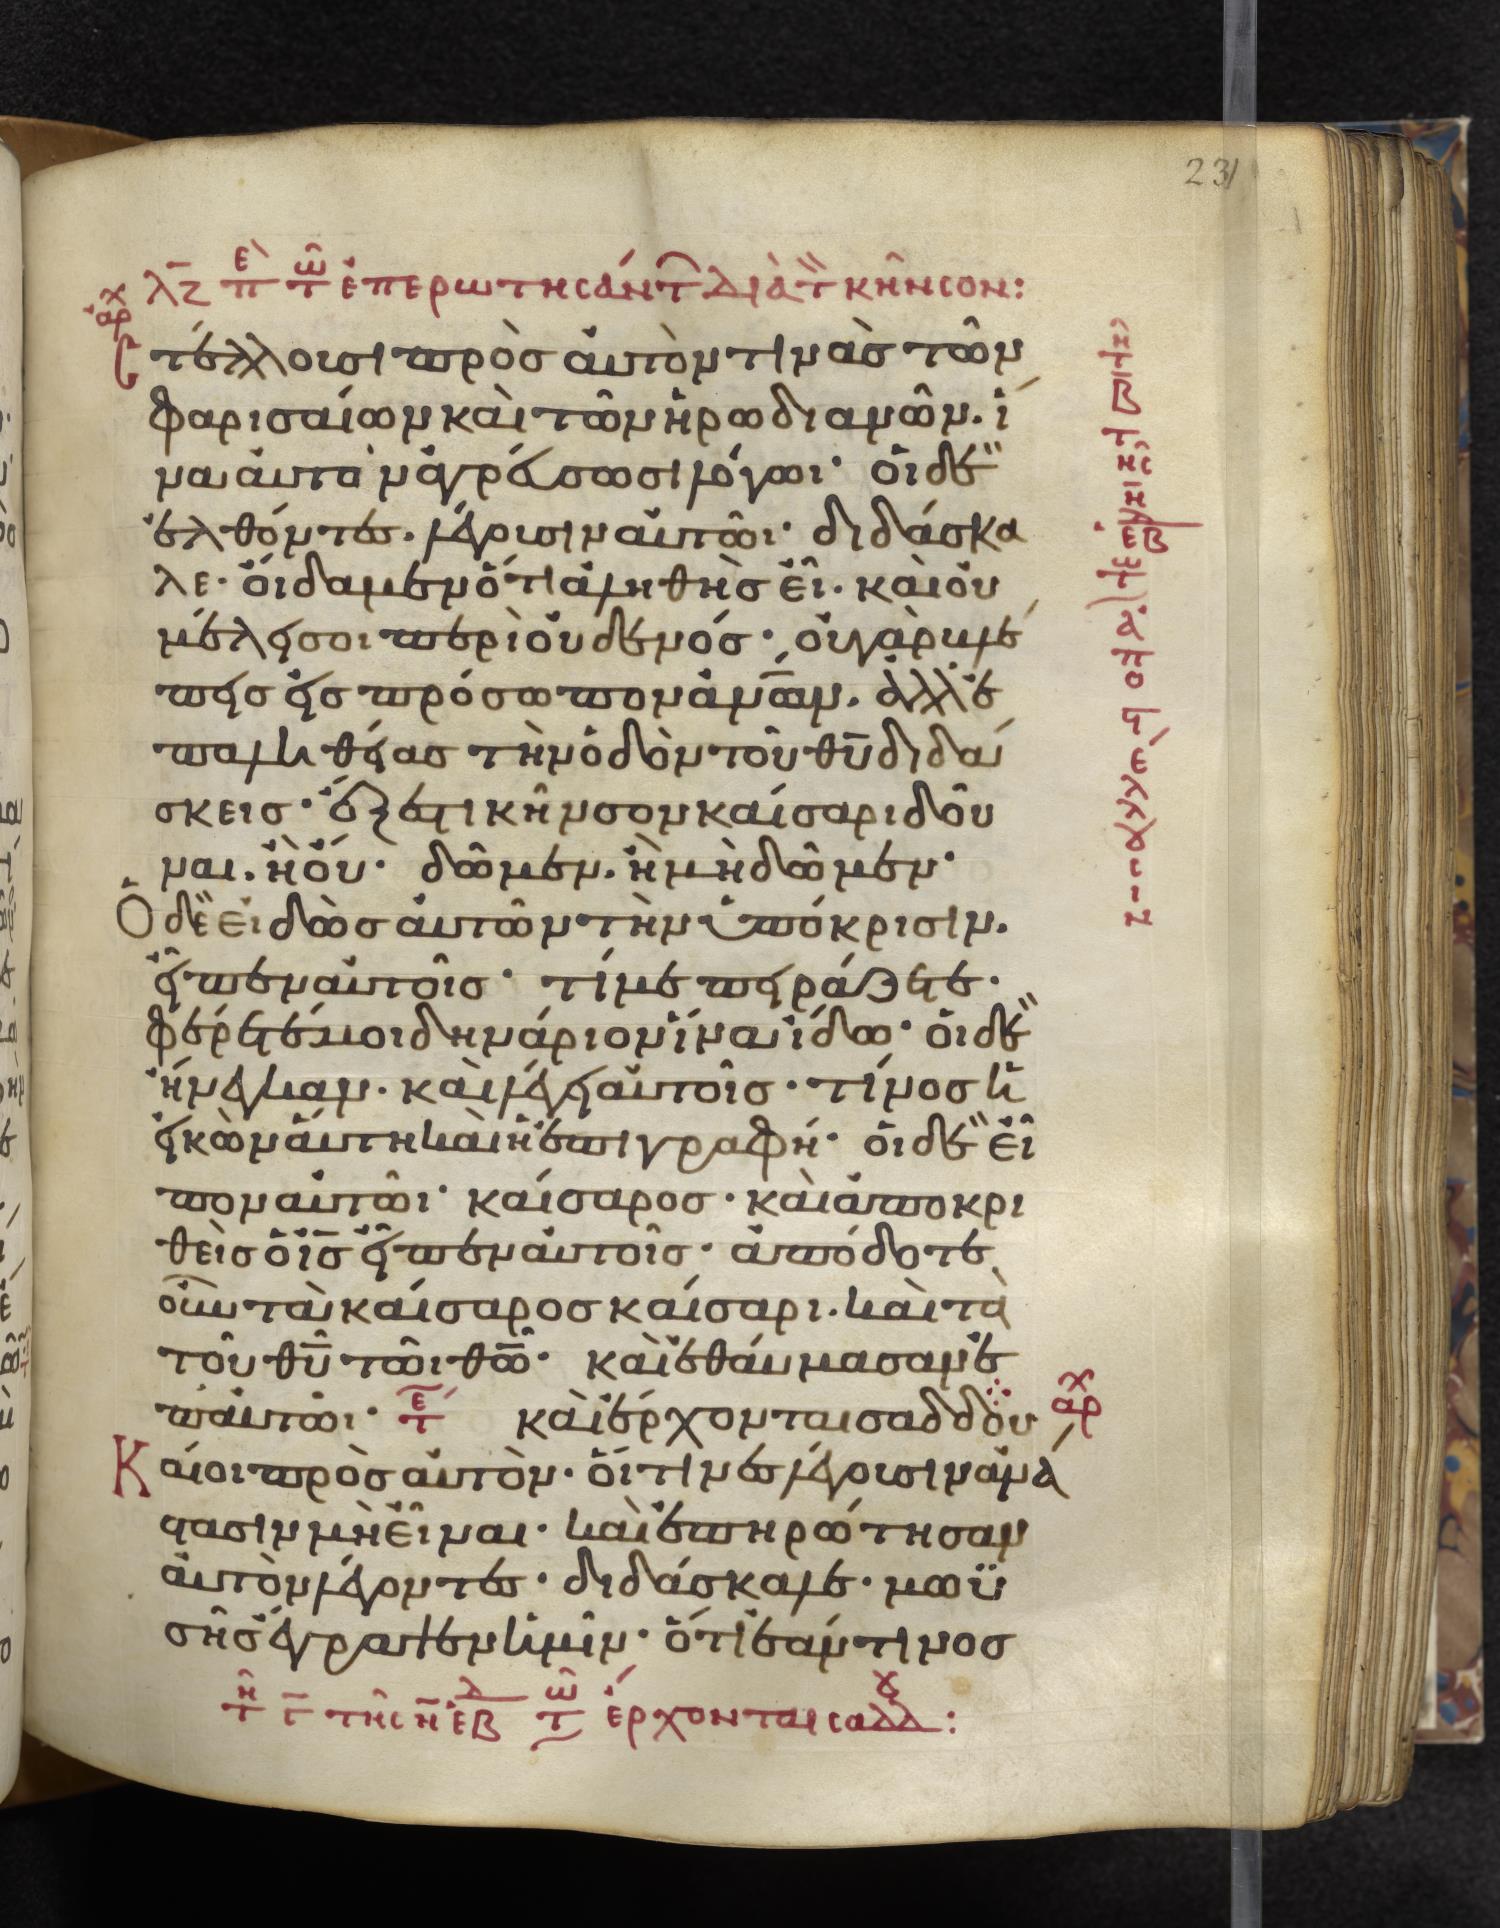 231
λζ π τ ἐπερωτησάντ διὰ τ κῆνσον:
ἀρχ
τέλλουσι πρὸσ ἀυτὸν τινὰσ τῶν
φαρισαίων καὶ τῶν ἡρωδιανῶν. ἵ
να ἀυτὸν ἀγρέυσωσι λόγωι· ὁι δὲ
ἐλθόντεσ. λέγουσιν ἀυτῶι· διδάσκα
λε· ὄιδαμεν ὅτι ἀληθὴσ εῖ· καὶ ὀυ
μέλει σοι περὶ ὀυδενόσ· ὀυ γὰρ βλέ
πεισ εἰσ πρόσωπον ἀν̅ω̅ν. ἀλλ ἐ
π ἀληθείασ τὴν ὁδὸν τοῦ θ̅υ̅ διδά
σκεισ· ἔξεστι κῆνσον καίσαρι δοῦ
ναι. ἢ ὄυ· δῶμεν. ἢ μὴ δῶμεν·
Ὁ δὲ ειδὼσ ἀυτῶν τὴν ὑπόκρισιν.
εἶπεν ἀυτοῖσ· τί με πειράζετε·
φέρετέ μοι δηνάριον ἵνα ίδω· ὁι δὲ
ἤνεγκαν. καὶ λέγει ἀυτοῖσ· τίνοσ ἡ
εἰκὼν ἅυτη καὶ ἡ ἐπιγραφή· ὁι δὲ εῖ
πον ἀυτῶι· καίσαροσ· καὶ ἀποκρι
θεὶσ ὁ ι̅σ̅ εἶπεν ἀυτοῖσ· ἀπόδοτε
οῦν τὰ καίσαροσ καίσαρι. καὶ τὰ
τοῦ θ̅υ̅ τῶι θ̅ω̅· καὶ ἐθάυμασαν ἐ
π ἀυτῶι· τε καὶ ἔρχονται σαδδου
ἀρχ
Κάιοι πρὸσ ἀυτὸν· ὅιτινεσ λέγουσιν ἀνά
στασιν μὴ εῖναι· καὶ ἐπηρώτησαν
ἀυτὸν λέγοντεσ· διδάσκαλε· μωϋ
σῆσ ἔγραψεν ἡμῖν· ὅτι ἐάν τινοσ
τῆς η ἐβ τ ἐρχονται σαδδ: